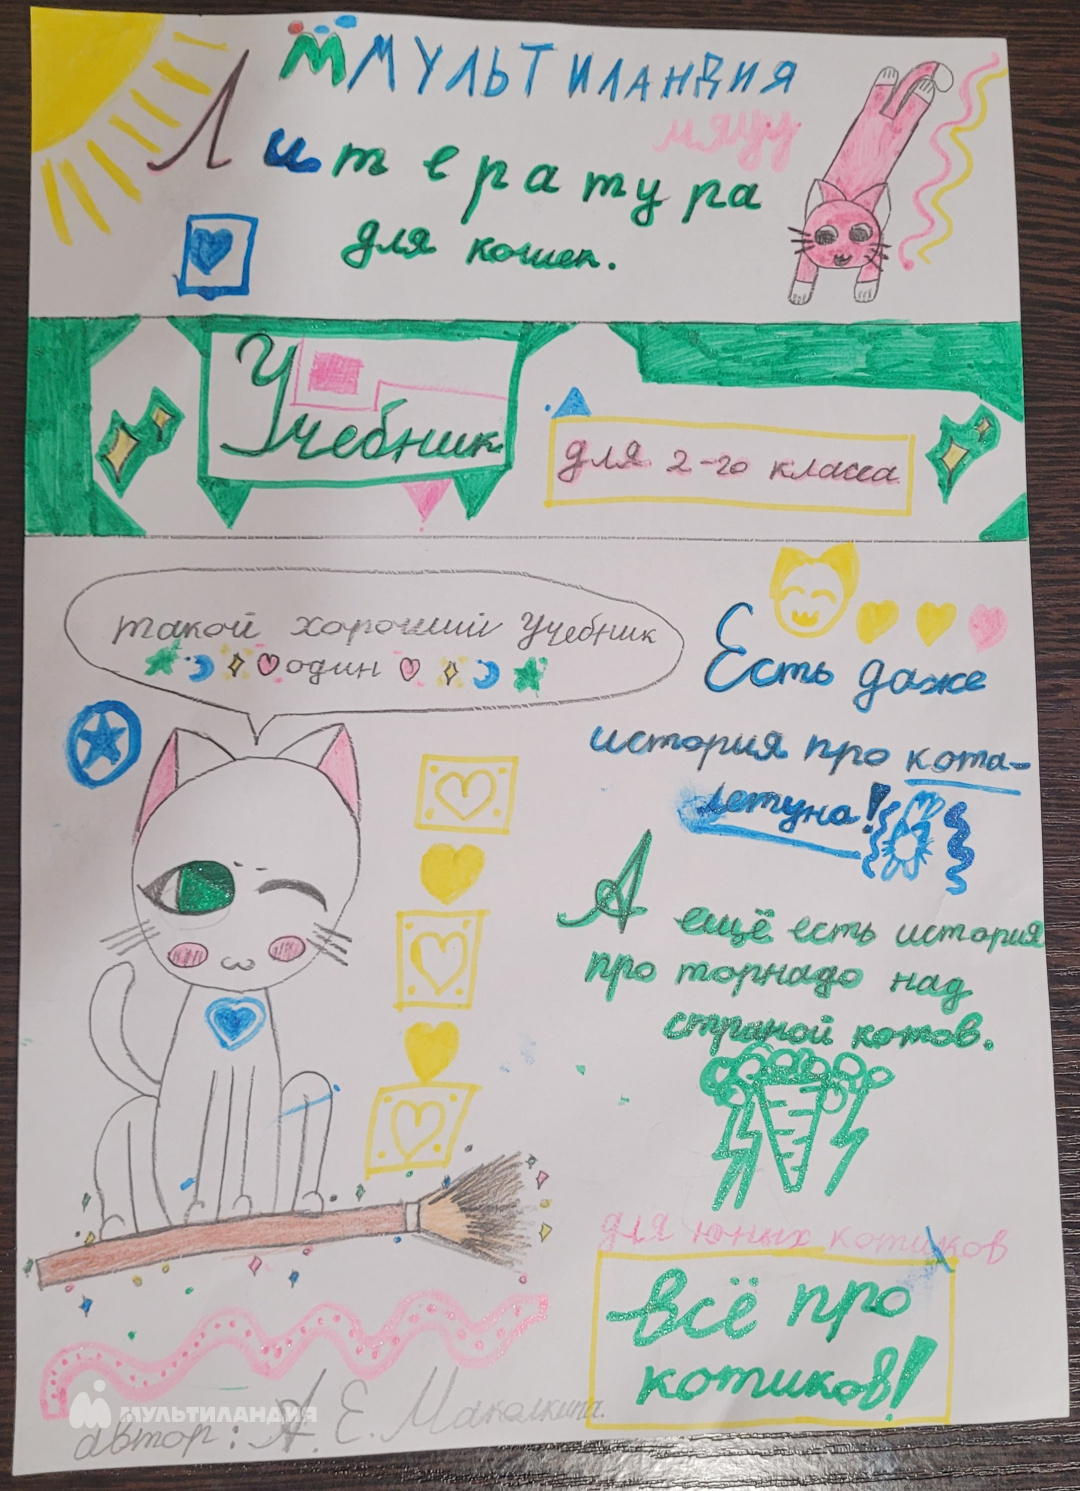 М МУЛЬТИЛАНДИЯ
мяуу
Литература
для кошек.
Учебник
для 2-го класса
такой хороший Учебник
один
Есть даже
история про кота-
летуна!
А ещё есть история
про торнадо над
страной котов.
для юных котиков
всё про
котиков!
МУЛЬТИЛАНДИЯ
автор: А. Е. Маколкина.